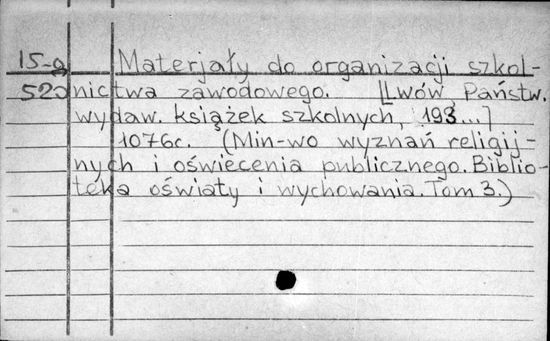 15-g Materjały do organizacji szkol-
520 nictwa zawodowego. [Lwów Państw.
wydaw. książek szkolnych, 193...]
1076c. (Min-wo wyznań religij-
nych i oświecenia publicznego. Biblio-
teka oświaty i wychowania. Tom 3.)